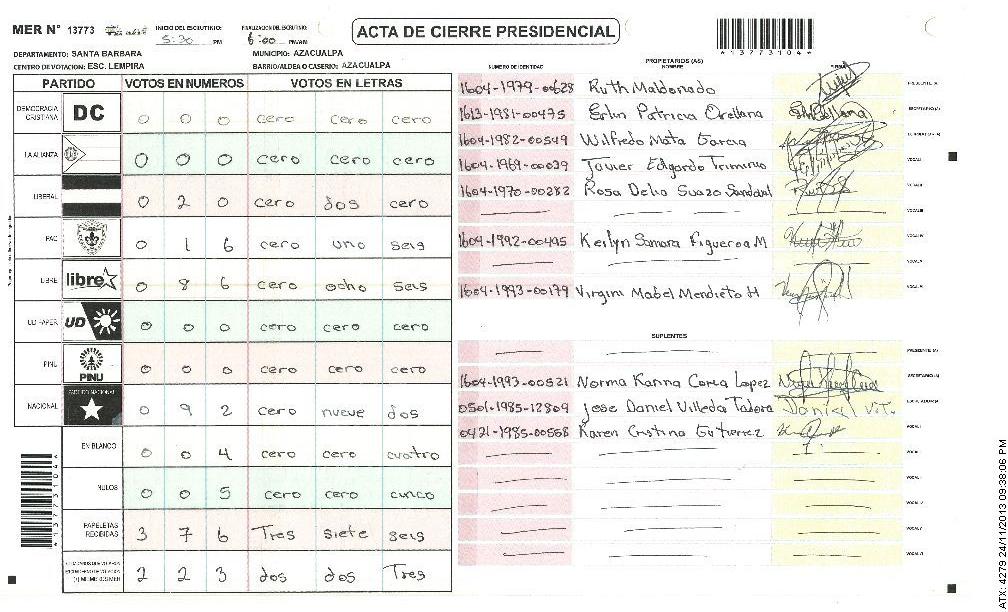 MER N° 13773 INICIO DEL ESCRUTINIO: 5:30 PM FINALIZACION DEL ESCRUTINIO: 6:00 PM/AM
ACTA DE CIERRE PRESIDENCIAL
*13773104*
DEPARTAMENTO: SANTA BARBARA MUNICIPIO: AZACUALPA
CENTRO DE VOTACION: ESC. LEMPIRA BARRIO/ALDEA O CASERIO: AZACUALPA
PARTIDO VOTOS EN NUMEROS VOTOS EN LETRAS
DEMOCRACIA CRISTIANA DC 0 0 0 cero cero cero
LA ALIANZA 0 0 0 cero cero cero
LIBERAL 0 2 0 cero dos cero
PAC 0 1 6 cero uno seis
LIBRE libre 0 8 6 cero ocho seis
UD FAPER UD 0 0 0 cero cero cero
PINU PINU 0 0 0 cero cero cero
NACIONAL PARTIDO NACIONAL 0 9 2 cero nueve dos
EN BLANCO 0 0 4 cero cero cuatro
NULOS 0 0 5 cero cero cinco
PAPELETAS RECIBIDAS 3 7 6 Tres siete seis
2 2 3 dos dos Tres
*13773104*
PROPIETARIOS (AS)
NUMERO DE IDENTIDAD NOMBRE FIRMA
1604-1979-00628 Ruth Maldonado PRESIDENTE (A)
1613-1981-00475 Erlin Patricia Orellana SECRETARIO (A)
1604-1982-00549 Wilfredo Mata Garcia ESCRUTADOR (A)
1604-1969-00039 Javier Edgardo Trimino VOCAL I
1604-1970-00282 Rosa Delia Suazo Sandoval VOCAL II
VOCAL III
1604-1992-00495 Keilyn Samara Figueroa M VOCAL IV
VOCAL V
1604-1993-00179 Virgini Mabel Mendieto H VOCAL VI
SUPLENTES
PRESIDENTE (A)
1604-1993-00521 Norma Karina Corea Lopez SECRETARIO (A)
0501-1985-12809 Jose Daniel Villeda Tabora Daniel V.T. ESCRUTADOR (A)
0421-1985-00568 Karen Cristina Gutierrez VOCAL I
VOCAL II
VOCAL III
VOCAL IV
VOCAL V
VOCAL VI
ATX: 4279 24/11/2013 09:38:06 PM